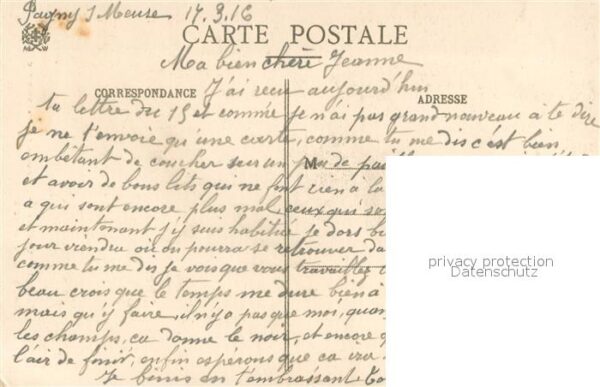 Pagny s Meuse 17.3.16
CARTE POSTALE
Ma bien chère Jeanne
CORRESPONDANCE
J'ai reçu aujourd'hui
ADRESSE
ta lettre du 15 et comme je n'ai pas grand nouveau à te dire
je ne t'envoie qu'une carte, comme tu me dis c'est bien
embêtant de coucher sur un peu de
M
et avoir de bons lits qui ne font rien à la
a qui sont encore plus mal ceux qui
et maintenant j'y suis habitué je dors
jour viendra où on pourra se retrouver
comme tu me dis je vois que vous travaillez
privacy protection
Datenschutz
beau crois que le temps me dure bien à
mais qu'y faire, il n'y a pas que moi, quan
les champs, ca donne le noir, et encore q
l'air de finir, enfin espérons que ca
Je finis en t'embrassant